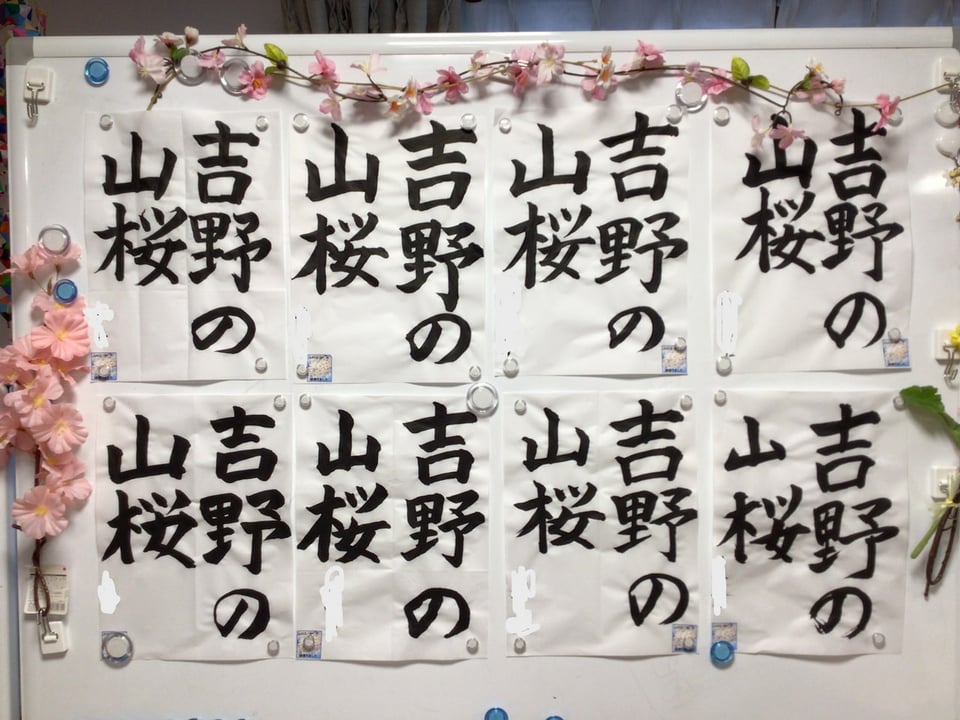 吉野の
山桜
吉野の
山桜
吉野の
山桜
吉野の
山桜
吉野の
山桜
吉野の
山桜
吉野の
山桜
吉野の
山桜